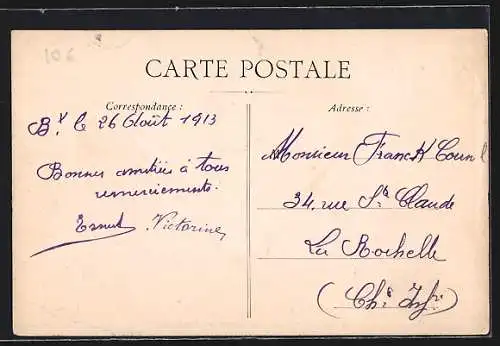 106
CARTE POSTALE
Correspondance :
B.x le 26 Août 1913
Bonnes amitiés à tous
remerciements.
Ernest Victorine
Adresse :
Monsieur Franck
34, rue Ste Claude
La Rochelle
(Che Infre)